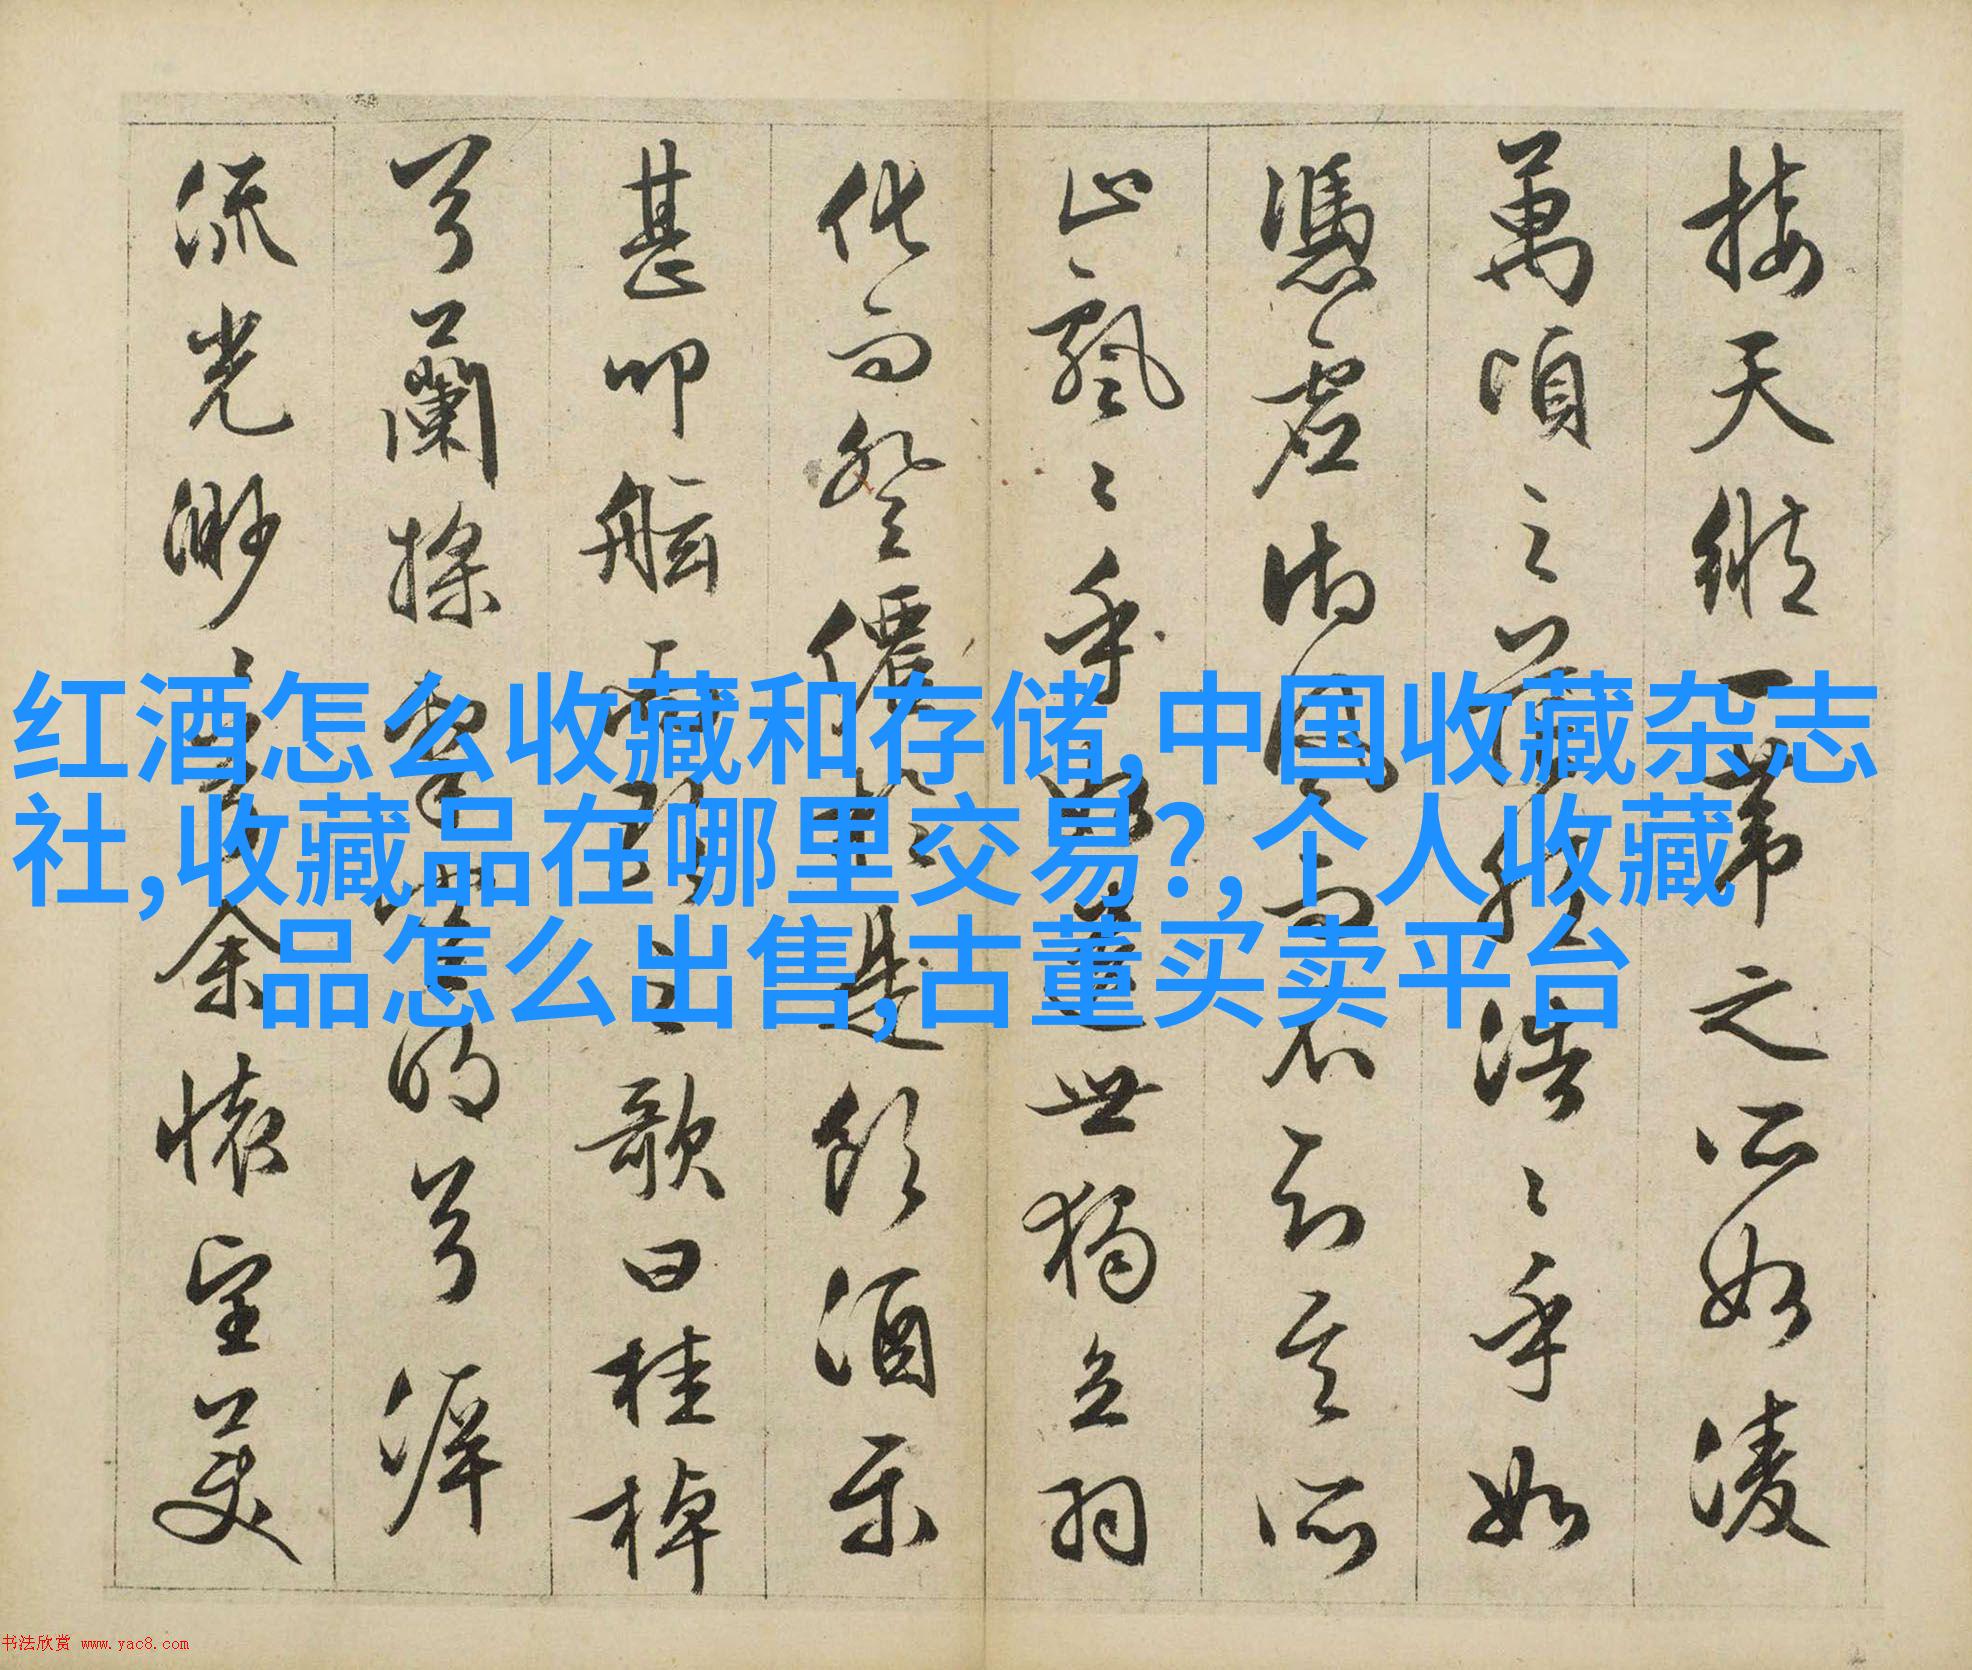 接天縱一葦之所如凌
萬頃之茫然浩〻乎如
憑虛御風而不知其所
止飄〻乎如遺世獨立羽
化而登僊於是飲酒樂
甚叩舷而歌之歌曰桂棹
兮蘭槳擊空明兮泝
流光渺〻兮余懷望美
红酒怎么收藏和存储,中国收藏杂志
社,收藏品在哪里交易?,个人收藏
品怎么出售,古董买卖平台
书法欣赏 www.yac8.com